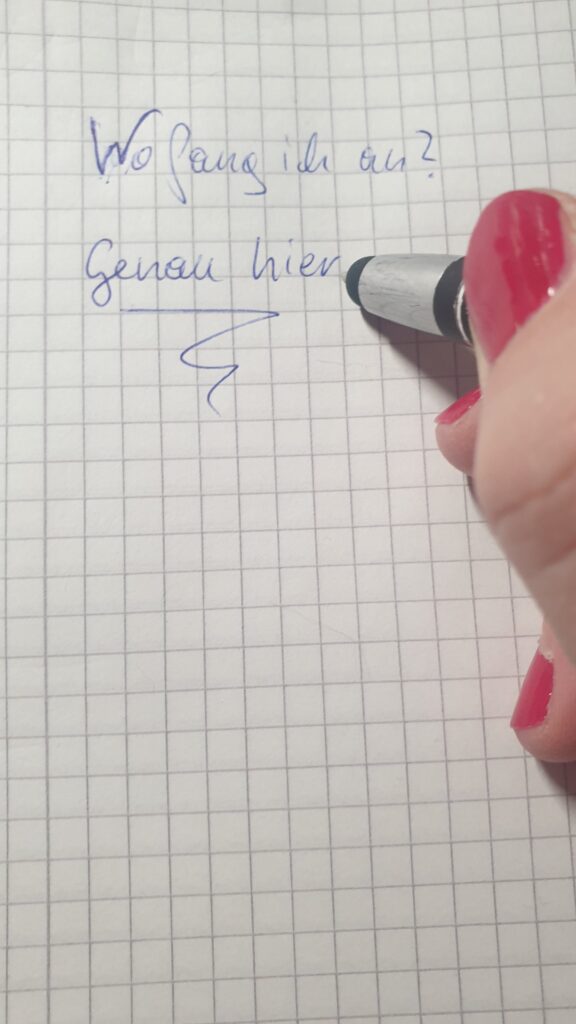 Wo fang ich an?
Genau hier